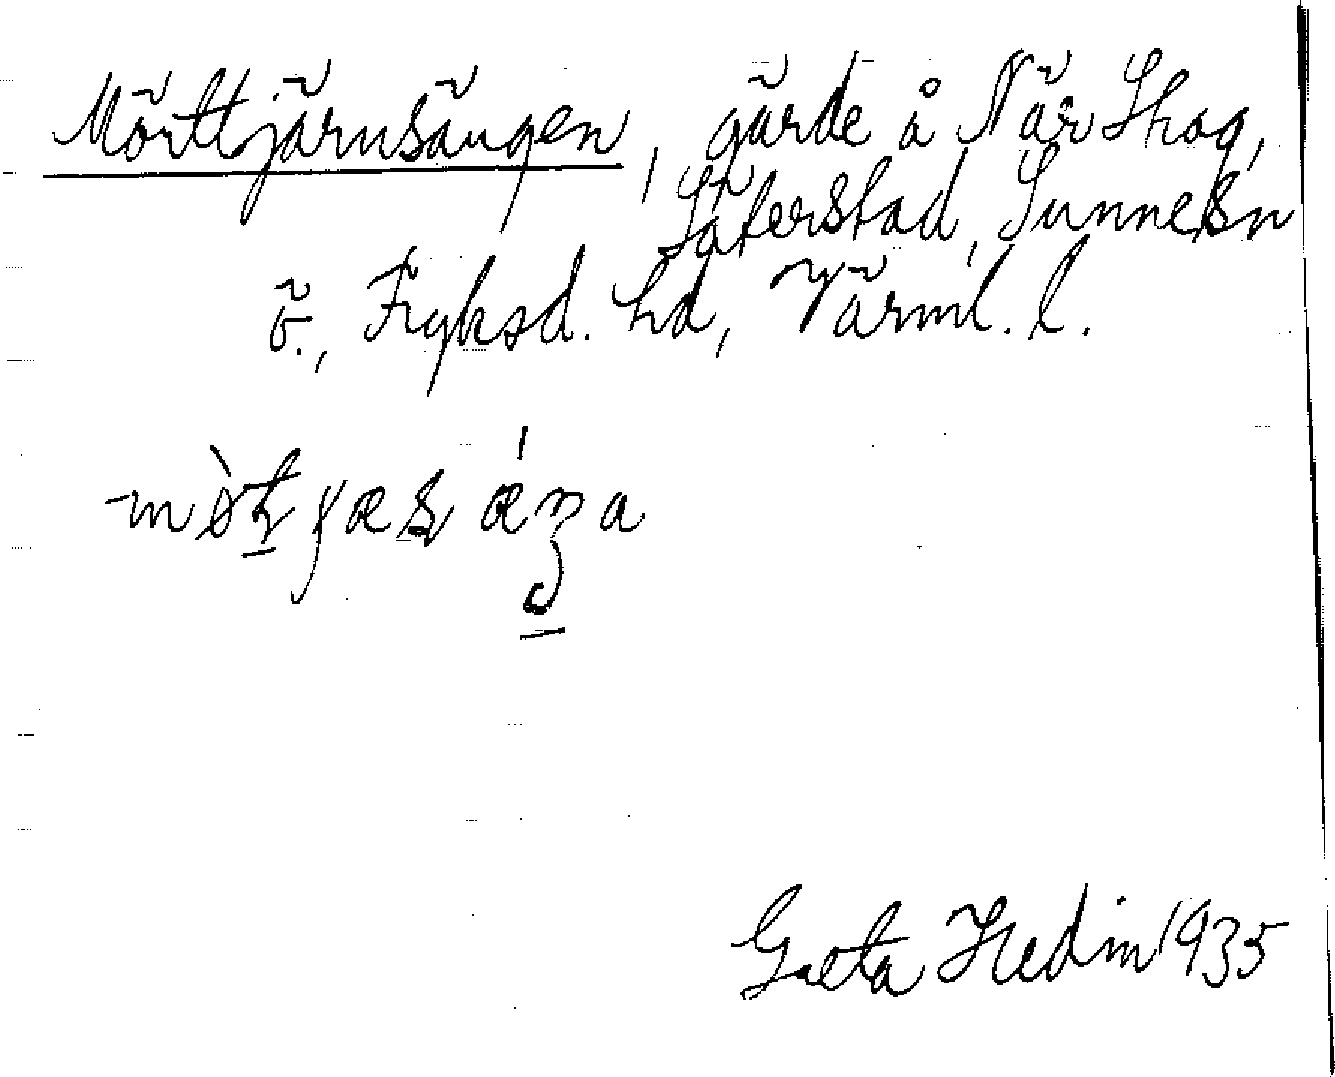 Mörttjärnsängen, gärde å När Skog,
Säterstad, Sunne sn
ö., Fryksd. hd, Värml. l.
Greta Hedin 1935